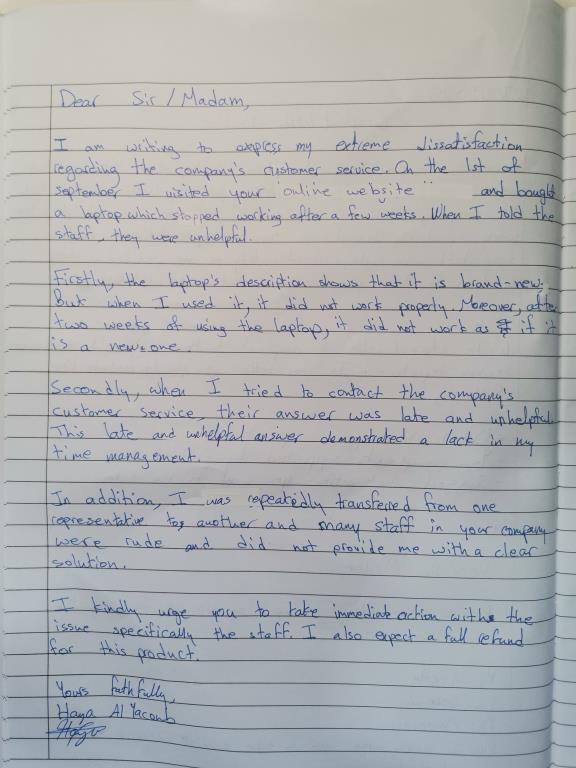 Dear Sir / Madam,
I am writing to express my extreme dissatisfaction
regarding the company's customer service. On the 1st of
september I visited your online website and bought
a laptop which stopped working after a few weeks. When I told the
staff, they were unhelpful.
Firstly, the laptop's description shows that it is brand-new.
But when I used it, it did not work properly. Moreover, after
two weeks of using the laptop, it did not work as if it
is a new one.
Secondly, when I tried to contact the company's
customer service, their answer was late and unhelpful.
This late and unhelpful answer demonstrated a lack in my
time management.
In addition, I was repeatedly transferred from one
representative to another and many staff in your company
were rude and did not provide me with a clear
solution.
I kindly urge you to take immediate action with the
issue specifically the staff. I also expect a full refund
for this product.
Yours faithfully,
Haya Al Yacoub